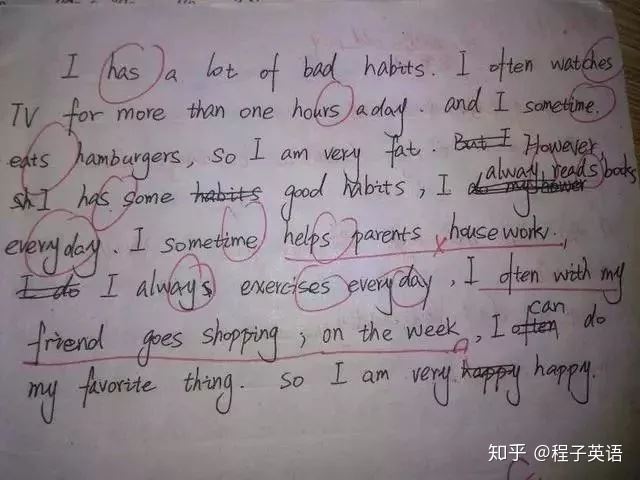 I has a lot of bad habits. I often watches
TV for more than one hours aday. and I sometime.
eats hamburgers, so I am very fat. But I However,
sh I has some habits good habits, I do my always reads books
everyday. I sometime helps parents housework.,
I do I always exercises everyday, I often with my
friend goes shopping; on the week, I often can do
my favorite thing. so I am very happy happy.
知乎 @程子英语